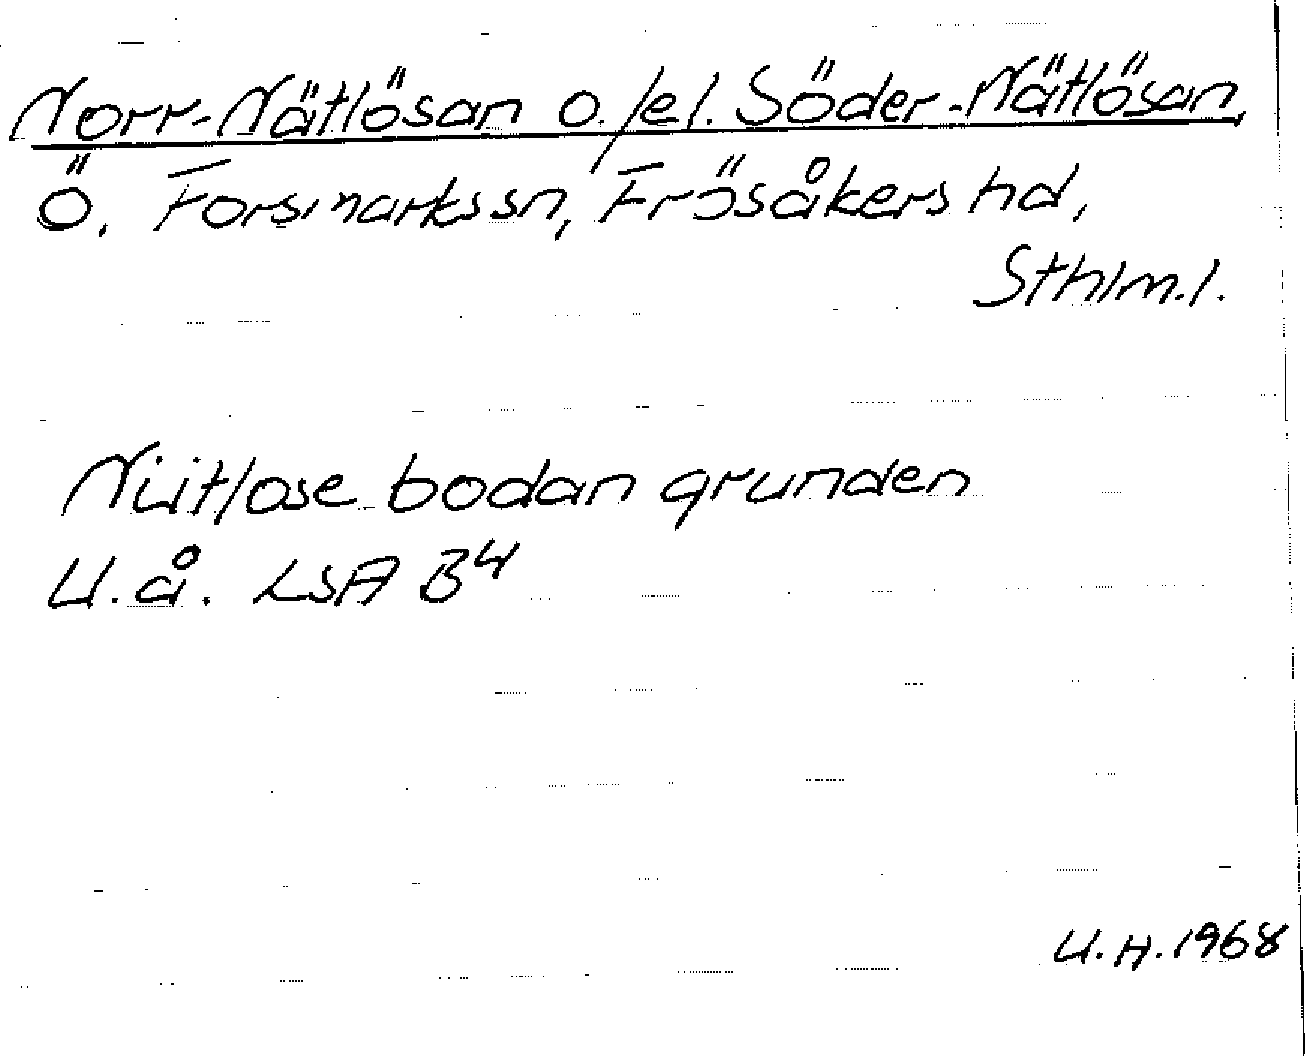 Norr-Nätlösan o./el. Söder-Nätlösan,
Ö. Forsmarks sn, Frösåkers hd,
Sthlm.l.
Nütlose bodan grunden
U.å. LSA B4
U.H. 1968